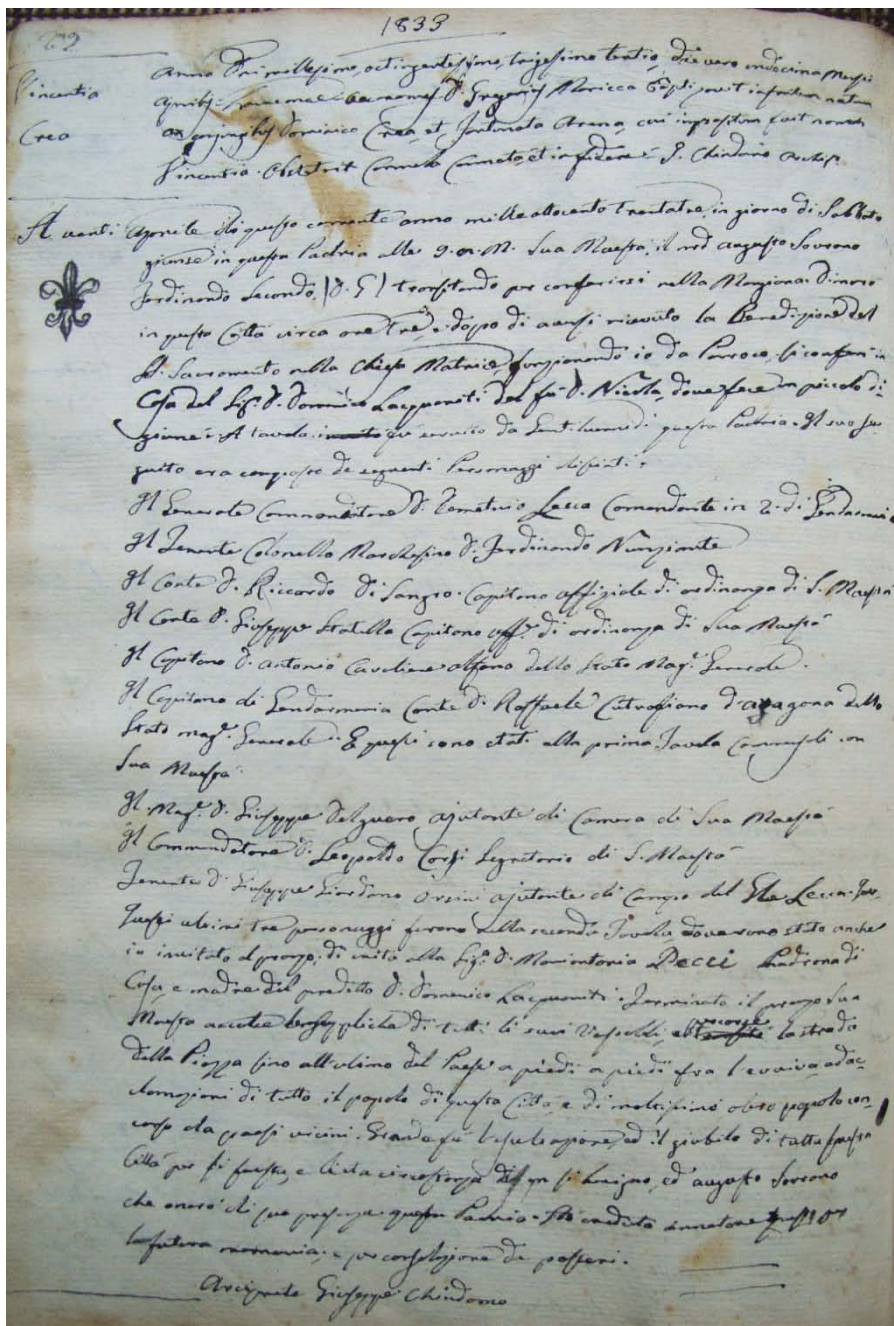 1833
Vincentia
Crea
Anno Dni millesimo, octingentesimo, trigesimo tertio, die vero undecima Mensis
Aprilis D. Gregorius Moricca Bapt. infantem natam
ex conjugibus Dominico Crea, et Fortunata Arena, cui impositum fuit nomen
Vincentia. Obstetrix Carmela et in fidem J. Chindamo Archip.
A venti Aprile di questo corrente anno mille ottocento trentatre, in giorno di Sabbato
giunse in questa Padria alle 9. a. M. Sua Maestà, il nro augusto Sovrano
Ferdinando Secondo (D. G) transitando per conferirsi nella Mongiana. Dimorò
in questa Città circa ore tre, e dopo di aversi ricevuto la Benedizione del
SS. Sacramento nella Chiesa Matrice, funzionando io da Parroco, si conferì in
Casa del Sig. D. Domenico Lacquaniti del fù D. Nicola, dove fece un piccolo di-
giunè. A tavola fù servito da Gentiluomini di questa Padria. Il suo se-
guito era composto de seguenti Personaggi distinti.
Il Generale Commendatore D. Demetrio Lecca Comandante in 2. di Gendarmeria
Il Tenente Colonello Marchesino D. Ferdinando Nunziante
Il Conte D. Riccardo Di Sangro. Capitano Uffiziale di ordinanza di S. Maestà
Il Conte D. Giuseppe Statella Capitano Uff. di ordinanza di Sua Maestà
Il Capitano D. Antonio Cavaliere Alfano dello Stato Mag. Generale.
Il Capitano di Gendarmeria Conte D. Raffaele Cutrofiano d'Aragona dello
Stato mag. Generale. E questi sono stati alla prima Tavola Commensali con
Sua Maestà
Il Mag. D. Giuseppe Delguero ajutante di Camera di Sua Maestà
Il Commendatore D. Leopoldo Corsi Segretario di S. Maestà
Tenente D. Giuseppe Giordano Orsini ajutante di Campo del Lecca.
Questi ultimi tre personaggi furono nella seconda Tavola, dove sono stato anche
io invitato al pranzo, di unità alla Sig. D. Mariantonia Pecci Padrona di
Casa, e madre del predetto D. Domenico Lacquaniti. Terminato il pranzo Sua
Maestà accettò le suppliche di tutti li suoi Vassalli, e percorse la strada
della Piazza sino all'ultimo del Paese a piedi a piedi fra l'evviva, ed ac-
clamazioni di tutto il popolo di questa Città, e di moltissimo altro popolo con-
corso da paesi vicini. Grande fù l'esultazione, ed il giubilo di tutta questa
Città per sì fausta, e lieta circostanza di un sì benigno, ed augusto Sovrano
che onorò di sua presenza questa Padria. Hò creduto annotare questo per
la futura memoria, e per consolazione de posteri.
Arciprete Giuseppe Chindamo